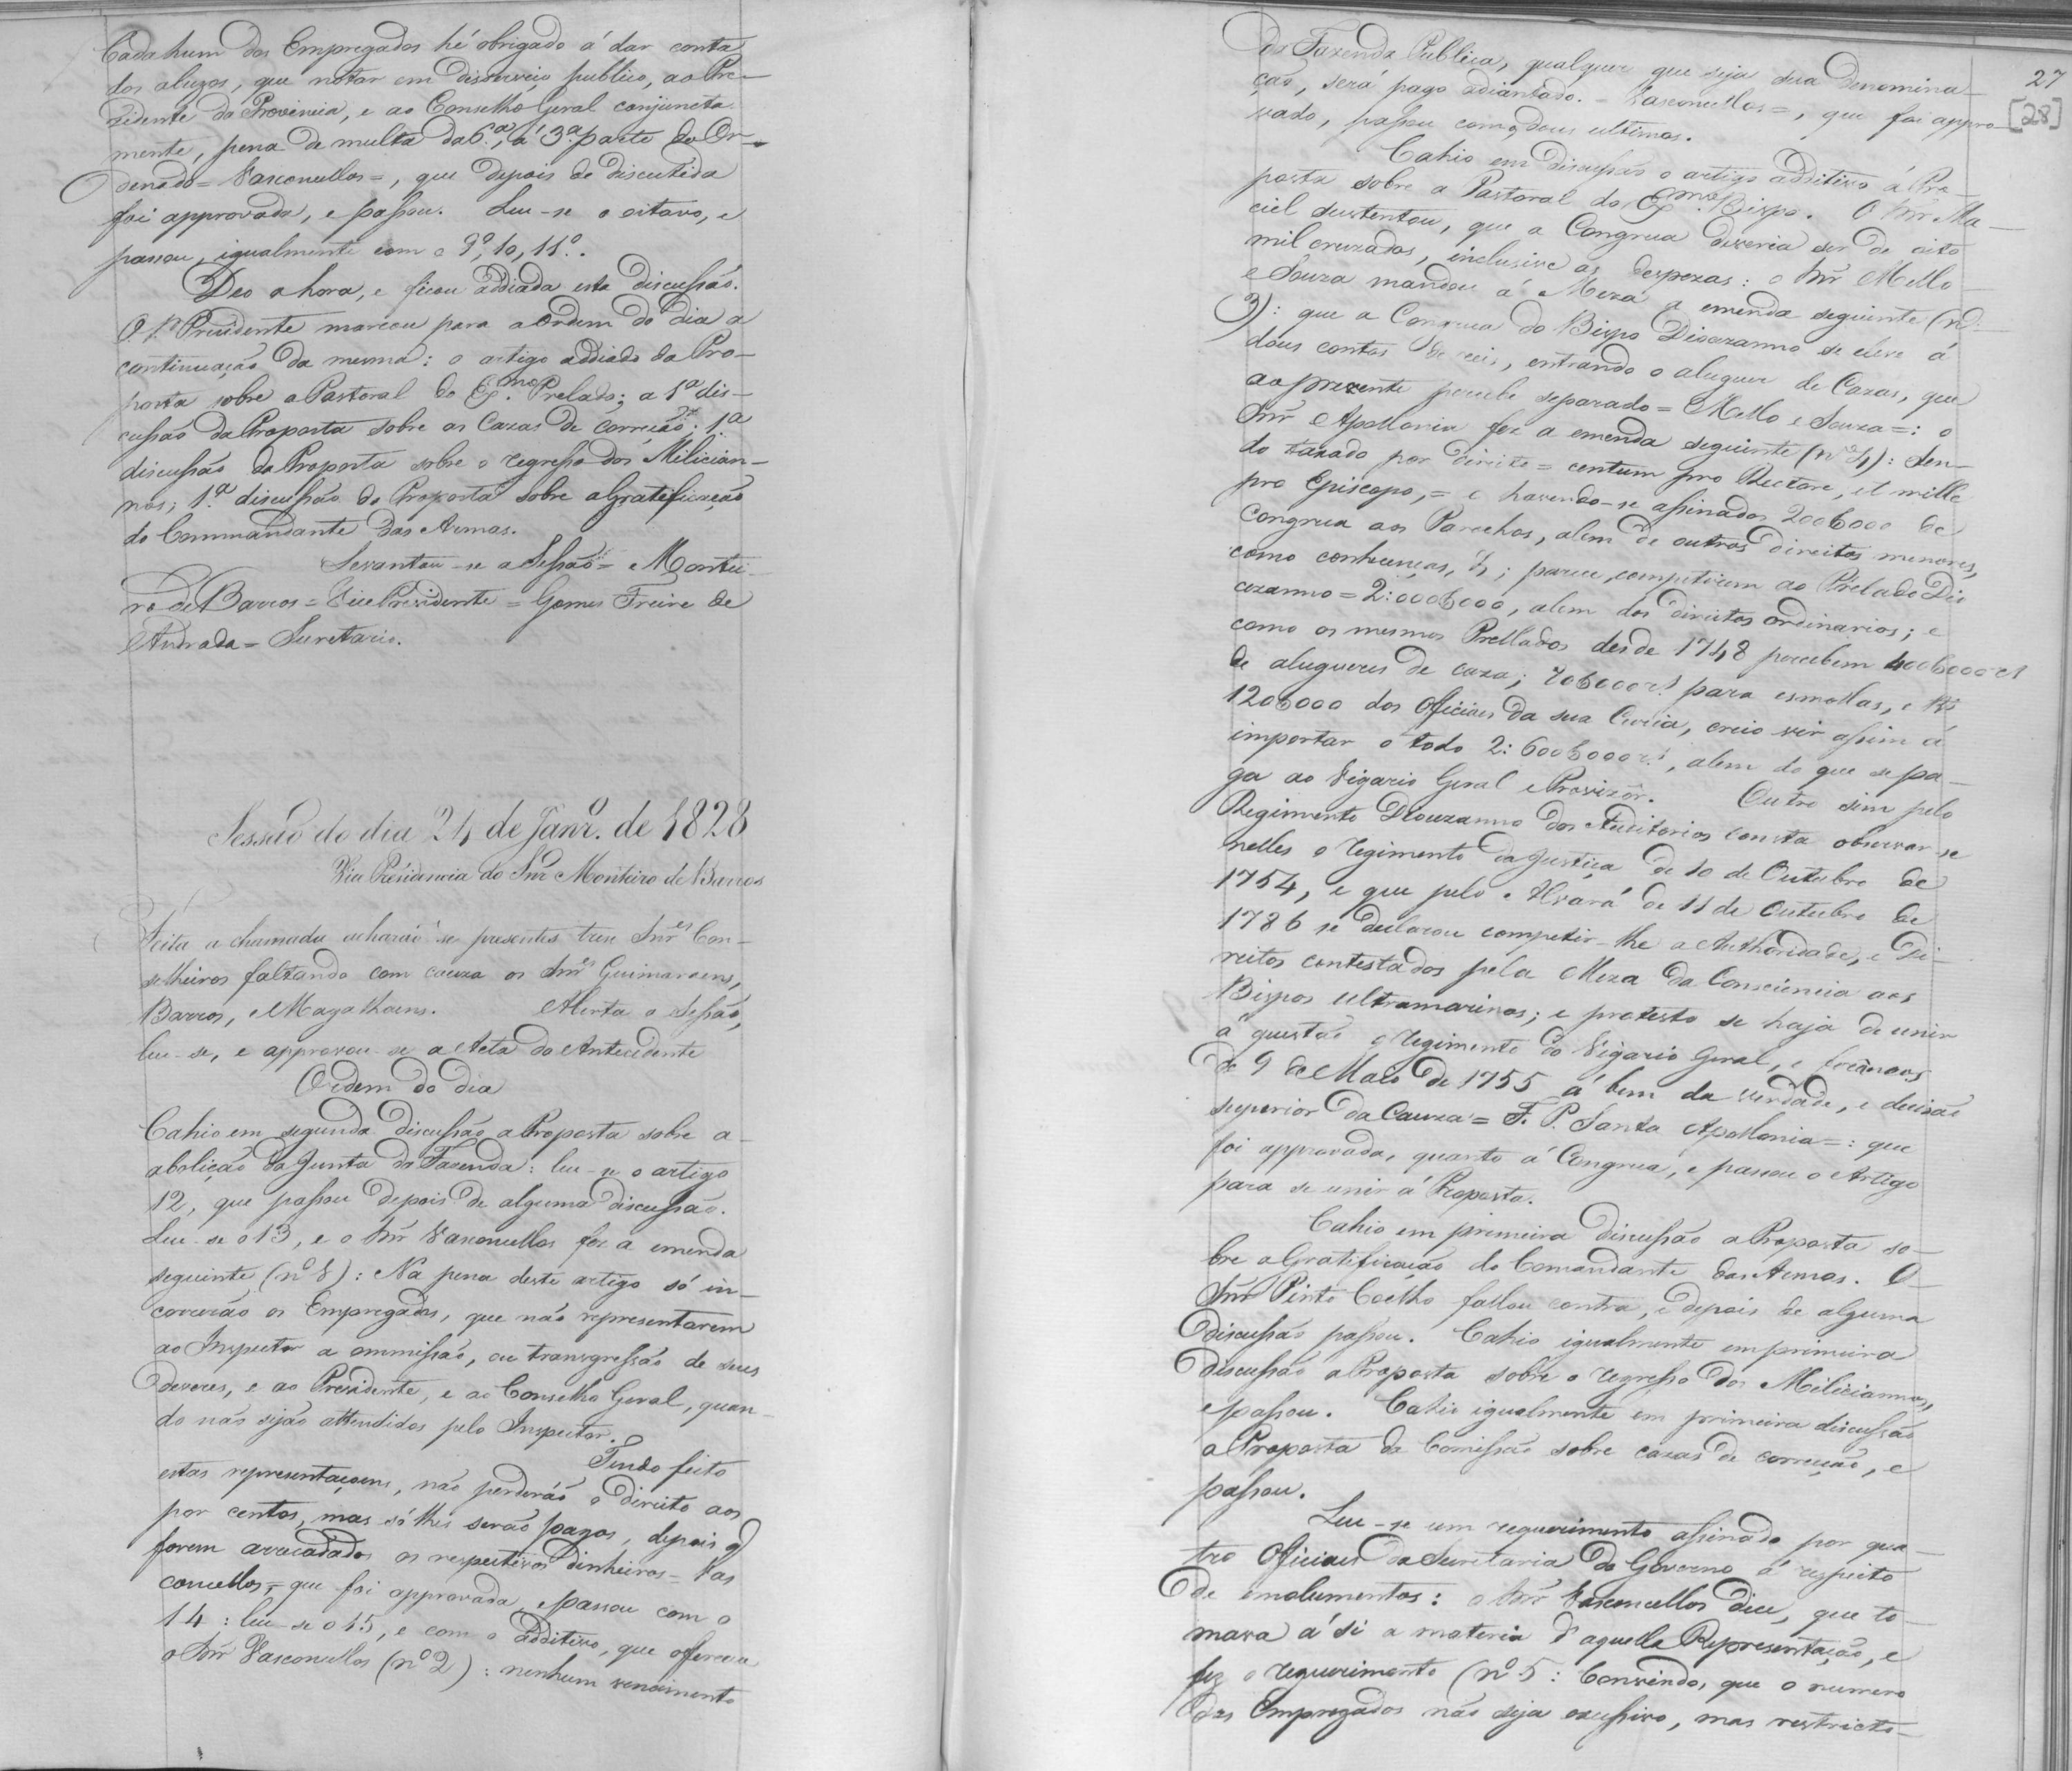 Cada hum dos Empregados hé obrigado á dar conta
dos abuzos, que notar em disserviço publico, ao Pre-
zidente da Provincia, e ao Conselho Geral conjuncta
mente, pena de multa da 6.ª, á 3.ª parte do Or-
denado = Vasconcellos =, que depois de discutida
foi approvada, e passou. Leu-se o oitavo, e
passou, igualmente com o 9.º, 10, 11.º.
Deo a hora, e ficou addiada esta discussão.
O Sr. Presidente marcou para a Ordem do dia a
continuação da mesma: o artigo addiado da Pro-
posta sobre a Pastoral do Ex.mo Prelado; a 1.ª dis-
cussão da Proposta sobre as Cazas de correição; 1.ª
discussão da Proposta sobre o regresso dos Milician-
nos; 1.ª discussão da Proposta sobre a Gratificação
do Commandante das Armas.
Levantou-se a Sessão = Montei-
ro de Barros = Vice Prezidente = Gomes Freire de
Andrada = Secretario.
Sessão do dia 24 de Janr.o de 1828
Vice Prezidencia do Snr Monteiro de Barros
Feita a chamada acharão se presentes treze Snr.es Con-
selheiros faltando com cauza os Snr.es Guimaraens,
Barros, e Magalhaens. Aberta a Sessão,
leu-se, e approvou-se a Acta da Antecedente
Ordem do dia
Cahio em segunda discussão a Proposta sobre a
abolição da Junta da Fazenda: leu-se o artigo
12, que passou depois de alguma discussão.
Leu-se o 13, e o Snr Vasconcellos fez a emenda
seguinte (nº 1): Na pena deste artigo só in-
correrão os Empregados, que não representarem
ao Inspector a ommissão, ou transgressão de seus
deveres, e ao Presidente, e ao Conselho Geral, quan-
do não sejão attendidos pelo Inspector.
Tendo feito
estas representaçoens, não perderão o direito aos
por centos, mas só lhes serão pagos, depois q
forem arrecadados os respectivos dinheiros = Vas
concellos =, que foi approvada, e passou com o
14: leu-se o 15, e com o additivo, que offereceu
o Snr Vasconcellos (nº 2): nenhum vencimento
27
[28]
da Fazenda Publica, qualquer que seja sua denomina-
ção, será pago adiantado. = Vasconcellos =, que foi appro-
vado, passou com os dous ultimos.
Cahio em discussão o artigo additivo á Pro-
posta sobre a Pastoral do Ex.mo Bispo. O Snr Ma-
ciel sustentou, que a Congrua deveria ser de oito
mil cruzados, inclusive as despezas: o Snr Mello
e Souza mandou á Meza a emenda seguinte (nº
3): que a Congrua do Bispo Diocezanno se eleve á
dous contos de reis, entrando o aluguer de Cazas, que
ao prezente percebe separado = Mello e Souza =: o
Snr Apollonia fez a emenda seguinte (nº 4): Sen-
do taxado por direito = centum pro Rectore, et mille
pro Episcopo, = e havendo-se assinados 200$000 de
Congrua aos Parochos, alem de outros direitos menores,
como conhecenças, &; parece competirem ao Prelado Dio
cezanno = 2:000$000, alem dos direitos ordinarios; e
como os mesmos Prellados desde 1748 percebem 400$000 rs
de alugueres de caza; 70$000 rs para esmollas, e Rs
120$000 dos Officiaes da sua Curia, creio vir assim á
importar o todo 2:600$000 rs, alem do que se pa-
ga ao Vigario Geral e Provizor. Outro sim pelo
Regimento Diocezanno dos Auditorios consta observar-se
nelles o regimento da Justiça de 10 de Outubro de
1754, e que pelo Alvará de 11 de Outubro de
1786 se declarou competir-lhe a Authoridade, e Di-
reitos contestados pela Meza da Consciencia aos
Bispos ultramarinos; e protesto se haja de unir
á questão o regimento do Vigario Geral, e
de 9 de Maio de 1755 á bem da verdade, e decizão
superior da Cauza = F. P. Santa Apollonia =: que
foi approvada, quanto á Congrua, e passou o Artigo
para se unir á Proposta.
Cahio em primeira discussão a Proposta so-
bre a Gratificação do Comandante das Armas. O
Snr Pinto Coelho fallou contra, e depois de alguma
discussão passou. Cahio igualmente em primeira
discussão a Proposta sobre o regresso dos Miliciannos,
e passou. Cahio igualmente em primeira discussão
a Proposta da Comissão sobre cazas de correcção, e
passou.
Leu-se um requerimento assinado por qua-
tro Officiaes da Secretaria do Governo á respeito
de emolumentos: o Snr Vasconcellos dice, que to-
mava á si a materia d'aquella Representação, e
fez o requerimento (nº 5: Convindo, que o numero
dos Empregados não seja excessivo, mas restricto-